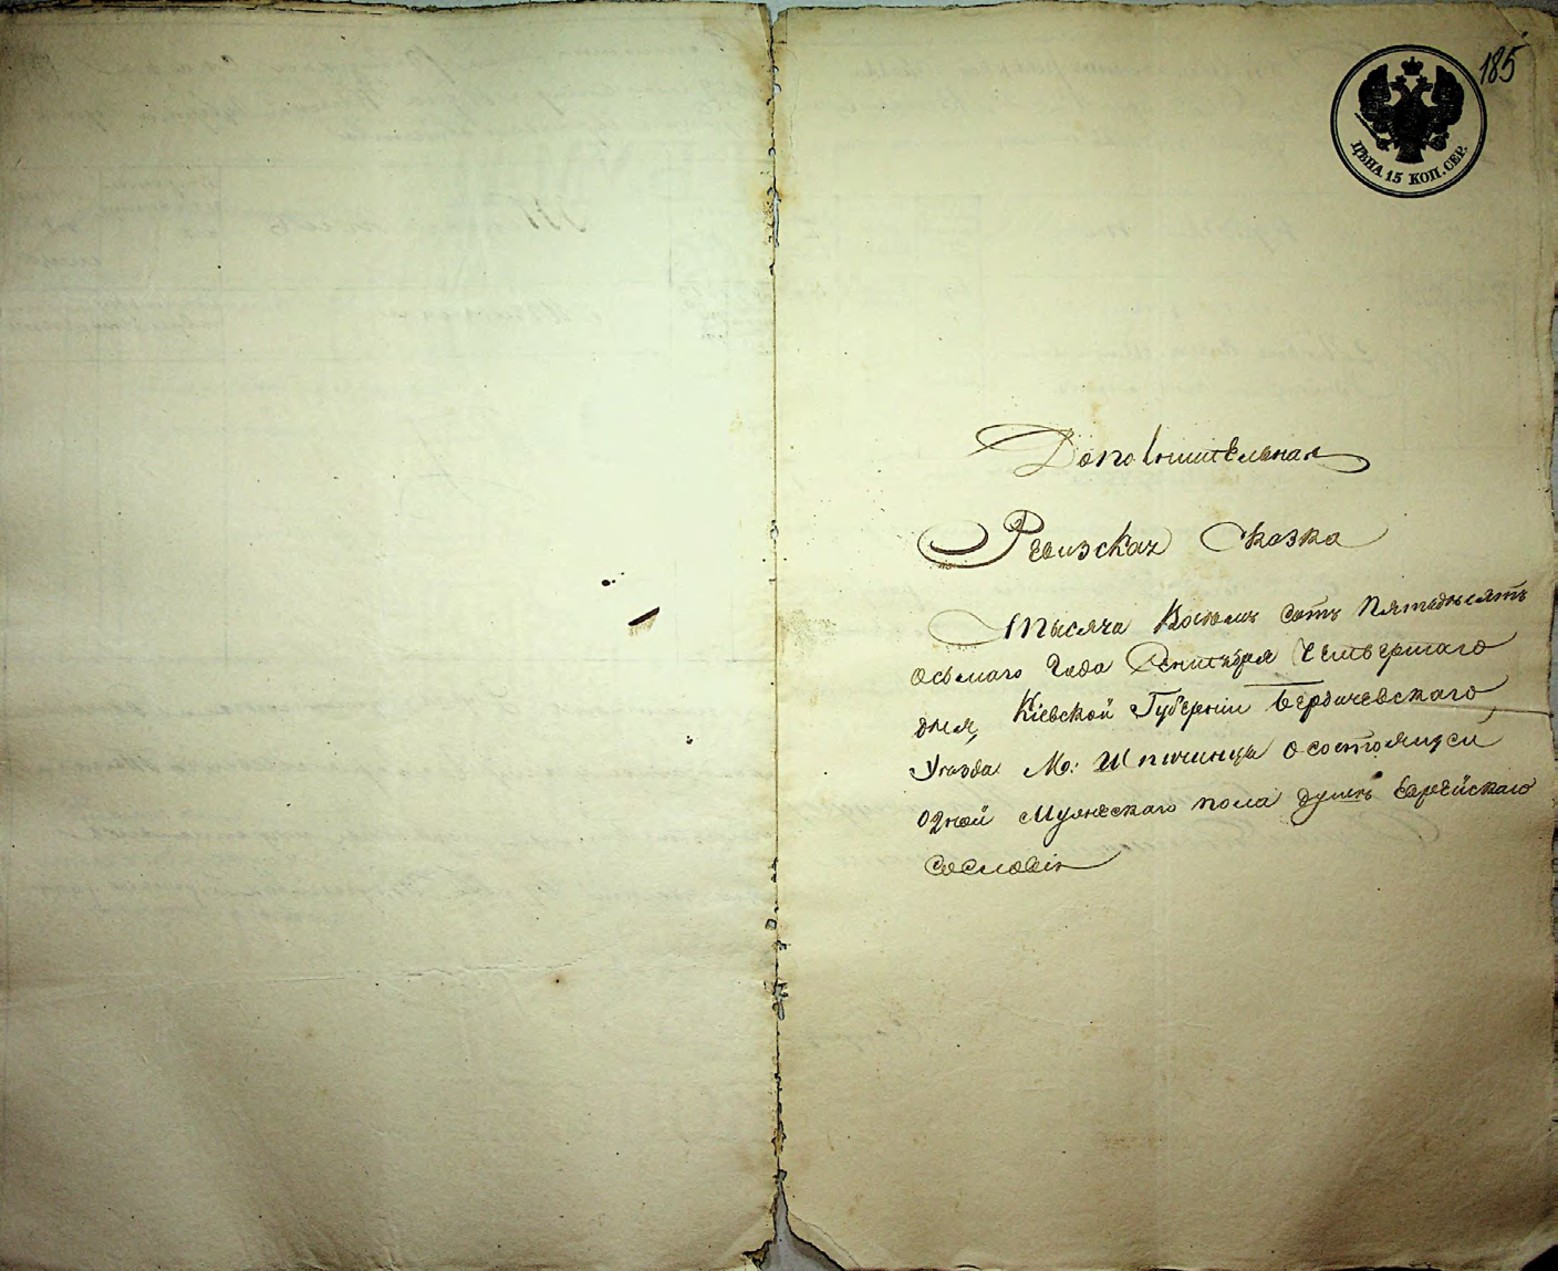 185
ЦѢНА 15 КОП. СЕР.
Дополнительная
Ревизская Сказка
Тысяча Восемь сотъ Пятьдесятъ
осьмаго Года Сентября Четвертаго
дня, Кіевской Губерніи Бердичевскаго
Уѣзда М: Шпичинцы о состоящей
одной Мужескаго пола душѣ Еврейскаго
Сословія